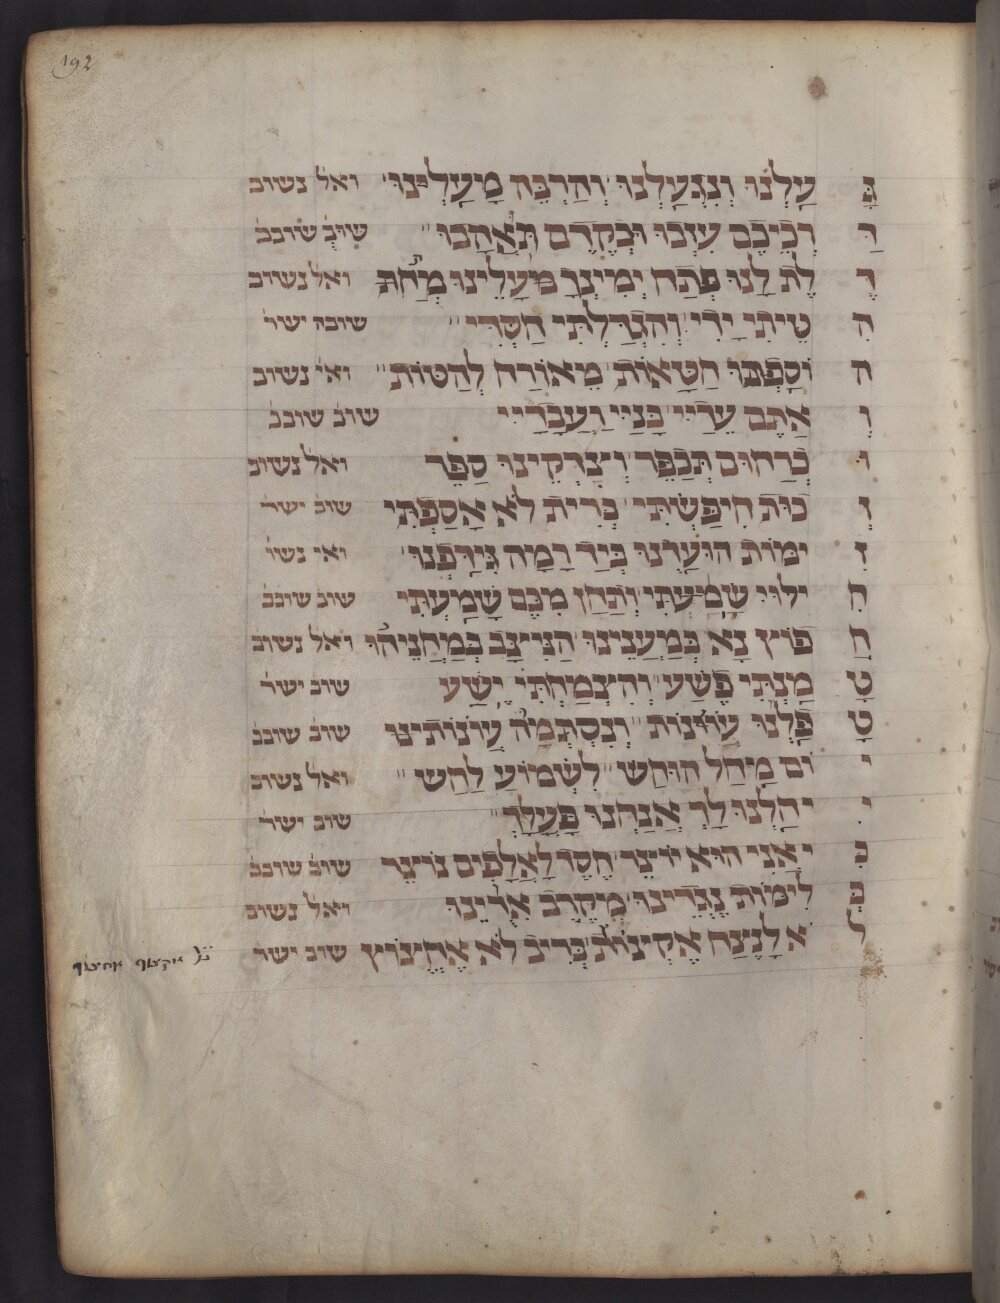 192
בָּ עָלְנוּ וְנִנְעָלְנוּ וְהַרְבֵּה מָעָלְינוּ ואל נשוב
דַּ רְכֵיכֶם עִזְבוּ וּבְקֶרֶם תְּאֵהָבוּ שוב שובב
דֶּ לֶת לָנוּ פְתַח יְמִינְךָ מֵעָלֵינוּ מְתַּח ואל נשוב
הִ טֵיתִי יָדִי וְהִגְדַלְתִּי חַסְדִּי שובה ישר
ה וֹסָפְנוּ חַטָּאוֹת מֵאוֹרַח לְהַטּוֹת ואי נשוב
וְ אַתֶּם עֵדַיי בָּנַיי וַעֲבָדָיי שוב שובב
וּ בְרַחוּם תְּכַפֵּר וְיִצְדְקֵינוּ סַפֵּר ואל נשוב
זְ כוּת חִיפַּשְׂתִּי בְּרִית לֹא אָסַפְתִּי שוב ישר
זְ ימּוֹת הוּעָדְנוּ בְּיַד רָמָה נִּידְפָנוּ ואי נשו
חִ ילוּי שָׁמַעְתִּי וְתַחַן מִכֶּם שָׁמָעְתִּי שוב שובב
חֲ פוֹץ נָא בְּמַעֲנֵינוּ הַנִּיצָּב בְּמַחֲנֵיהוּ ואל נשוב
טָ מַנְתִּי פֶּשַׁע וְהִצְמַחְתִּי יֶשַׁע שוב ישר
טָ פָלְנוּ עֲווֹנוֹת וְנִסְתְּמָה עֲוֹנוֹתֵינוּ שוב שובב
י וֹם מַחַל הוּחַשׁ לִשְׁמוֹעַ לַחַשׁ ואל נשוב
י יִחַלְנוּ לָךְ אֲנַחְנוּ פָּעֳלָךְ שוב ישר
כִּ י אֲנִי הוּא יוֹצֵר חֶסֶד לָאֲלָפִים נוֹצֵר שוב שובב
כְּ לִימּוֹת נֶגְדֵינוּ מְקֶרֶב אֵדֵינוּ ואל נשוב
ל א לָנֶצַח אֶקְצוֹף בְּרִיב לֹא אֶחֱצוֹץ שוב ישר